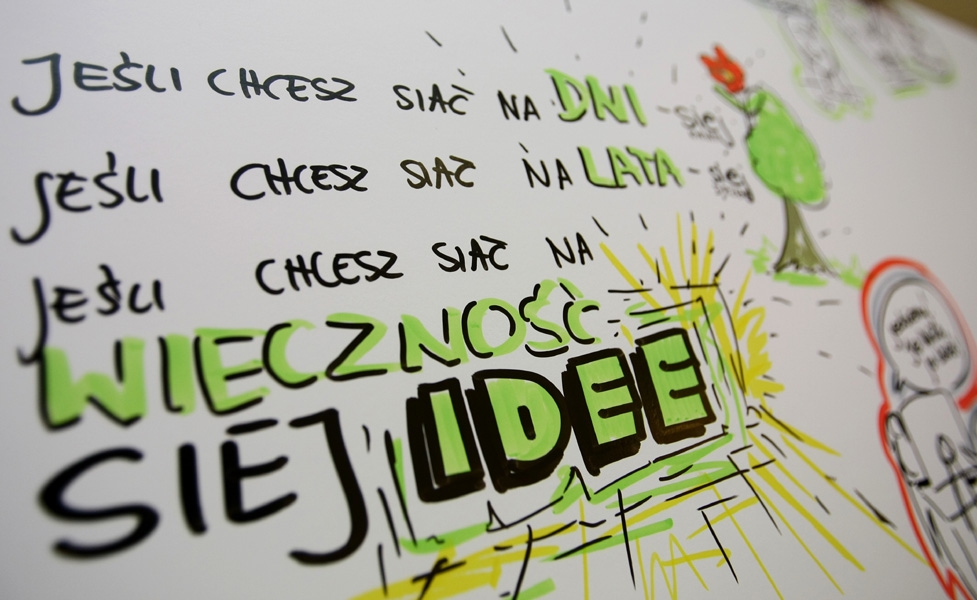 JEŚLI CHCESZ SIAĆ NA DNI - siej
JEŚLI CHCESZ SIAĆ NA LATA - siej
JEŚLI CHCESZ SIAĆ NA
WIECZNOŚĆ
SIEJ IDEE